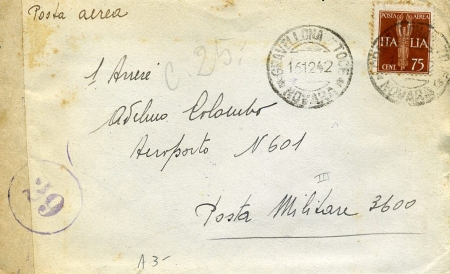 Posta aerea
C. 25
GRAVELLONA TOCE
16.12.42
* NOVARA *
POSTA AEREA
ITALIA
CENT 75
NOVARA
1º Aviere
Adelmo Colombo
Aeroporto N 601
III
Posta Militare 3600
39
A 3-